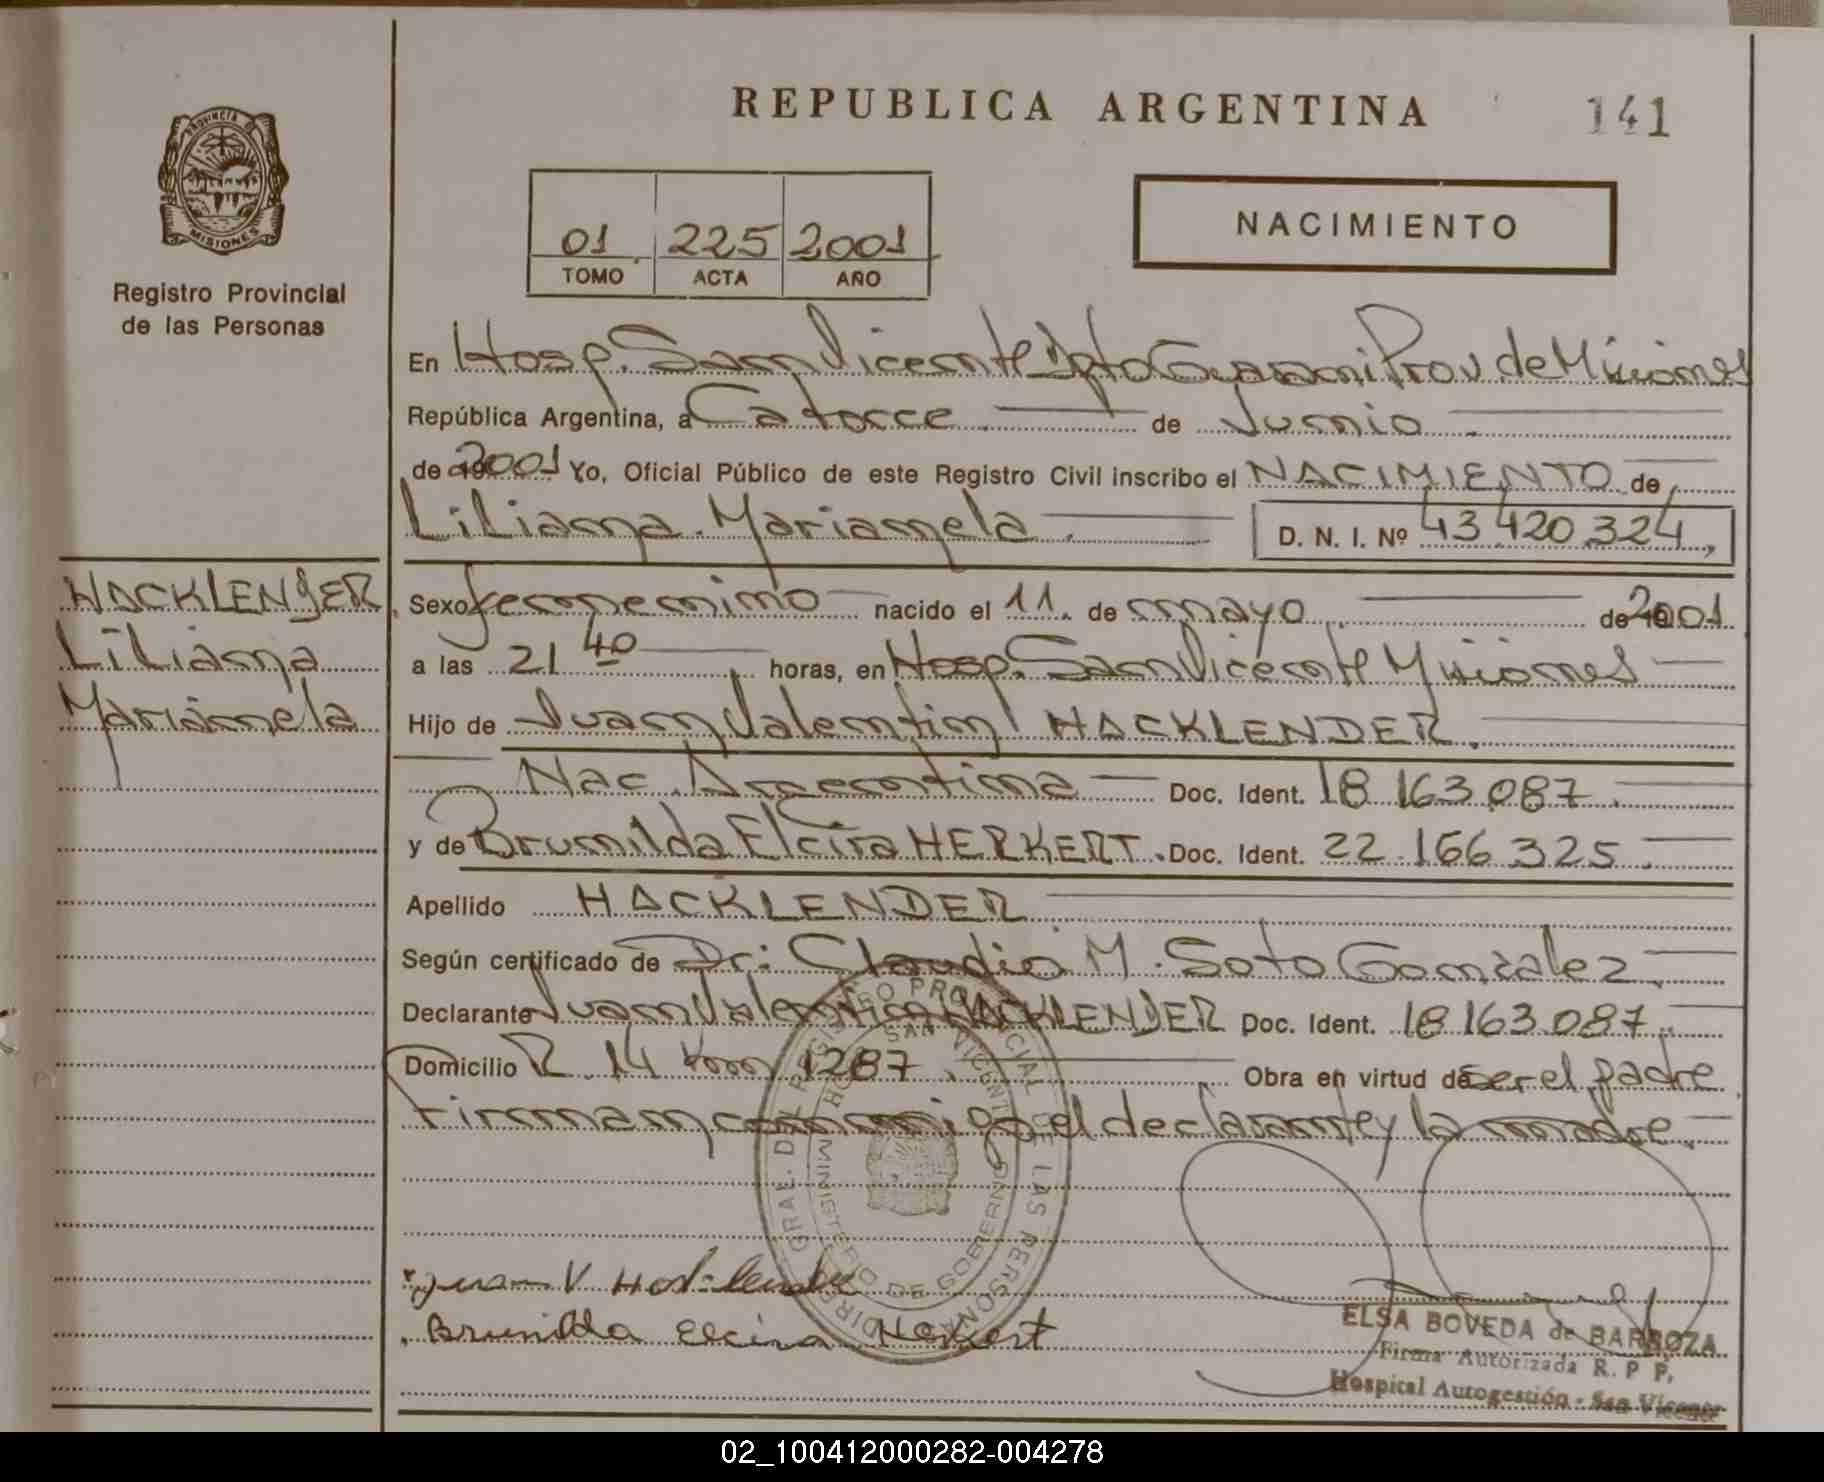 REPUBLICA ARGENTINA
141
PROVINCIA DE
MISIONES
Registro Provincial
de las Personas
01 225 2001
TOMO ACTA AÑO
NACIMIENTO
En Hosp. San Vicente Dpto Guarani Prov. de Misiones
República Argentina, a Catorce de Junio
de 2001 Yo, Oficial Público de este Registro Civil inscribo el NACIMIENTO de
Liliana Marianela D. N. I. Nº 43.420.324,
HACKLENDER
Liliana
Marianela
Sexo femenino nacido el 11 de mayo de 2001
a las 21 40 horas, en Hosp. San Vicente Misiones
Hijo de Juan Valentin HACKLENDER
Nac. Argentina Doc. Ident. 18.163.087.
y de Brunilda Elcira HERKERT. Doc. Ident. 22.166.325.
Apellido HACKLENDER
Según certificado de Dr: Claudio M. Soto Gonzalez
Declarante Juan Valentin HACKLENDER Doc. Ident. 18.163.087.
Domicilio R. 14 Km 1287. Obra en virtud de ser el padre
Firman conmigo el declarante y la madre.
DIREC. GRAL. DE REGISTRO PROVINCIAL DE LAS PERSONAS
SAN VICENTE
MINISTERIO DE GOBIERNO
Juan V Hacklender
Brunilda Elcira Herkert
ELSA BOVEDA de BARBOZA
Firma Autorizada R. P P,
Hospital Autogestión - San Vicente
02_100412000282-004278